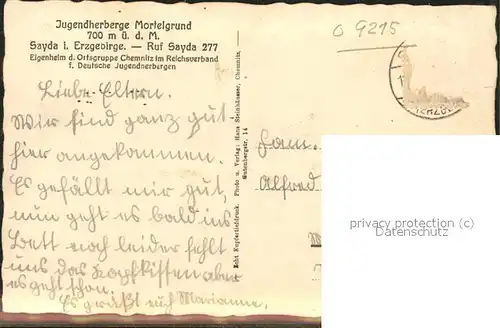 Jugendherberge Mortelgrund
700 m ü. d. M.
Sayda i. Erzgebirge. — Ruf Sayda 277
Eigenheim d. Ortsgruppe Chemnitz im Reichsverband
f. Deutsche Jugendherbergen
O 9215
Liebe Eltern.
Wir sind ganz gut
hier angekommen.
Es gefällt mir gut,
nun geht es bald ins
Bett noch leider fehlt
uns das Kopfkissen aber
es geht schon.
Es grüßt euch Marianne.
Echt Kupfertiefdruck. Photo u. Verlag: Hans Steinhäuser, Chemnitz,
Gutenbergstr. 14
Fam.
Alfred
privacy protection
Datenschutz